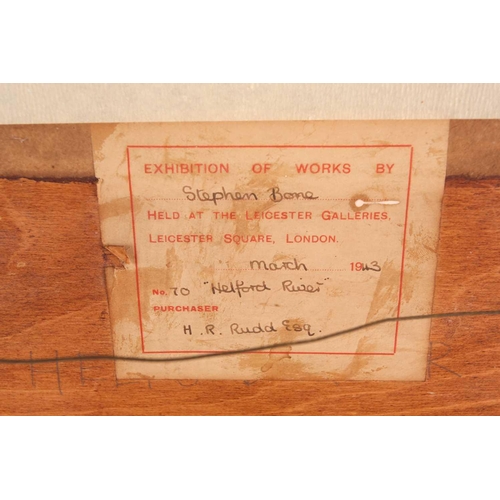 EXHIBITION OF WORKS BY
Stephen Bone
HELD AT THE LEICESTER GALLERIES,
LEICESTER SQUARE, LONDON.
March 1943
No. 70 "Helford River"
PURCHASER
H. R. Rudd Esq.
HE